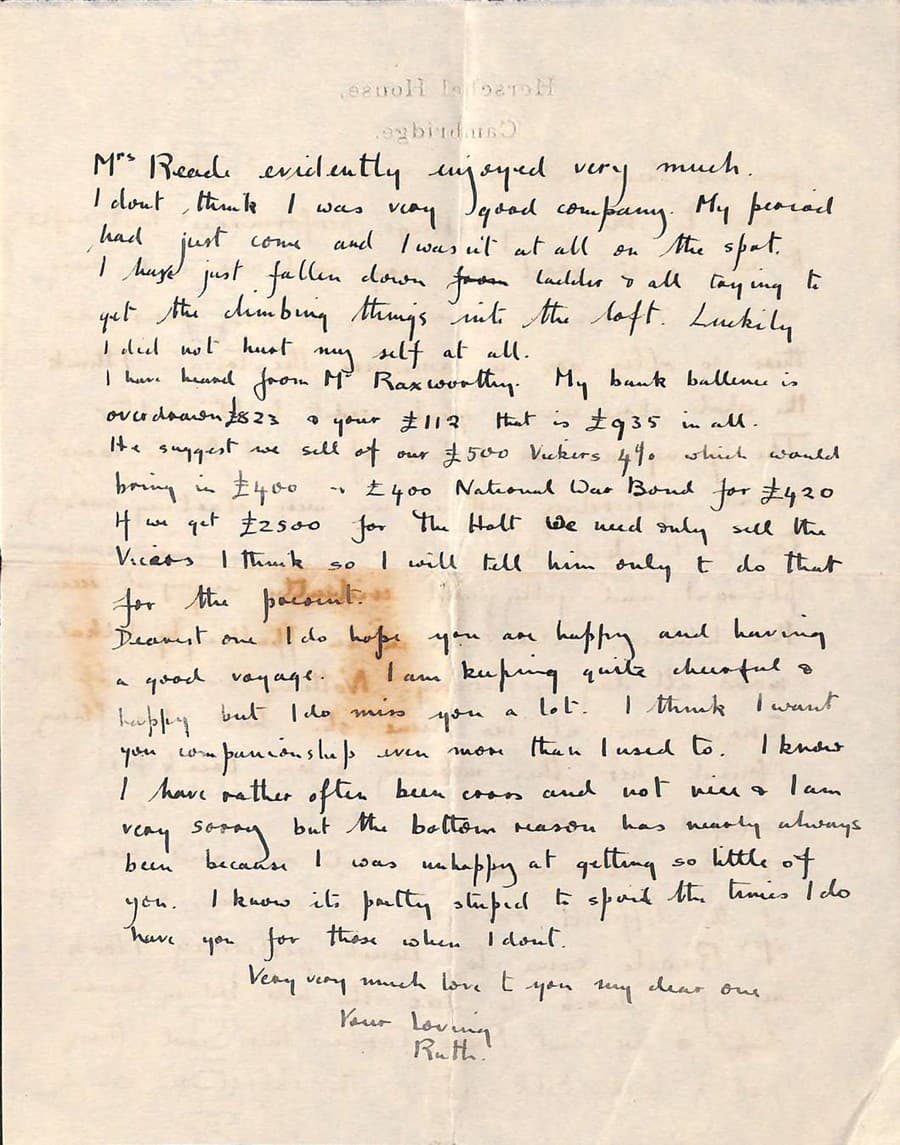 Herschel House,
Cambridge.
Mrs Reade evidently enjoyed very much.
I dont think I was very good company. My period
had just come and I wasn't at all on the spot.
I have just fallen down from ladder & all trying to
get the climbing things into the loft. Luckily
I did not hurt my self at all.
I have heard from Mr Raxworthy. My bank ballence is
overdrawn £823 & your £112 that is £935 in all.
He suggest we sell of our £500 Vickers 4% which would
bring in £400 & £400 National War Bond for £420
If we get £2500 for the Holt we need only sell the
Vicars I think so I will tell him only t do that
for the present.
Dearest one I do hope you are happy and having
a good voyage. I am keeping quite cheerful &
happy but I do miss you a lot. I think I want
you companionship even more than I used to. I know
I have rather often been cross and not nice & I am
very sorry but the bottom reason has nearly always
been because I was unhappy at getting so little of
you. I know its pretty stupid to spoil the times I do
have you for those when I dont.
Very very much love t you my dear one
Your loving
Ruth.